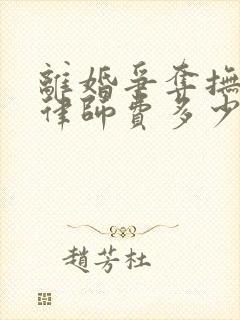 離婚爭奪撫
律師費多少
趙芳杜